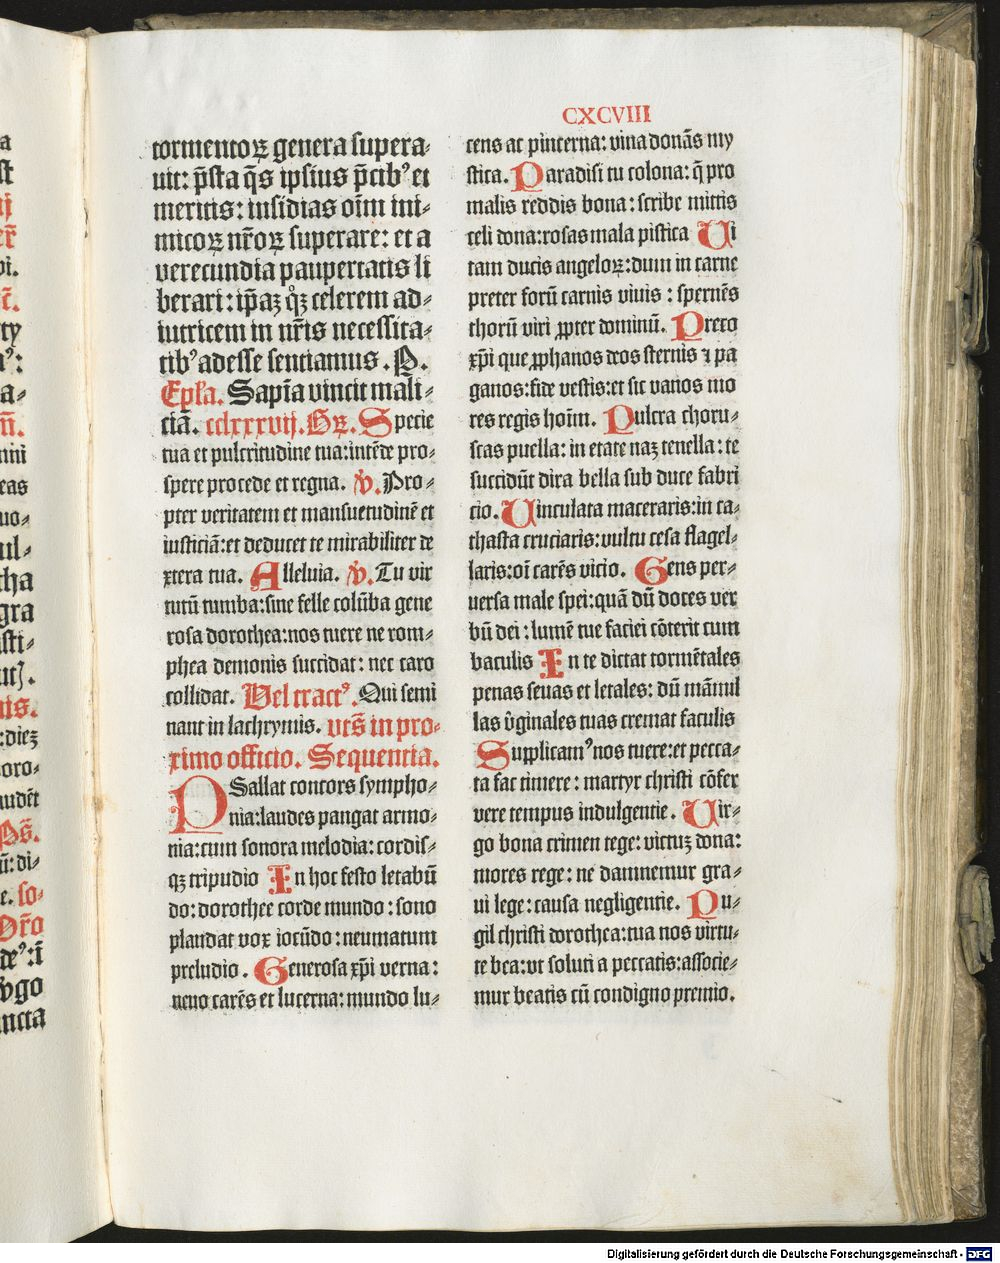 CXCVIII
tormentoꝝ genera supera⸗
uit: p̃sta q̃s ipsius p̃cibꝰ et
meritis: insidias oĩm ini⸗
micoꝝ nr̃oꝝ superare: et a
verecundia paupertatis li
berari: ip̃aꝫ celerem ad⸗
iutricem in nr̃is necessita⸗
tibꝰ adesse sentiamus. P.
Ep̃la. Sapĩa vincit mali⸗
ciã. cclxxxvij. Gꝝ. Specie
tua et pulcritudine tua: intẽde pro⸗
spere procede et regna. v̾. Pro⸗
pter veritatem et mansuetudinẽ et
iusticiã: et deducet te mirabiliter de
xtera tua. Alleluia. v̾. Tu vir
tutũ tumba: sine felle colũba gene
rosa dorothea: nos tuere ne rom⸗
phea demonis succidat: nec caro
collidat. Vel tractꝰ. Qui semi
nant in lachrymis. vts̃ in pro⸗
ximo officio. Sequentia.
PSallat concors sympho⸗
nia: laudes pangat armo⸗
nia: cum sonora melodia: cordis⸗
qꝫ tripudio In hoc festo letabũ
do: dorothee corde mundo: sono
plaudat vox iocũdo: neumatum
preludio. Generosa xp̃i verna:
neuo carẽs et lucerna: mundo lu⸗
cens ac pincerna: vina donãs my
stica. Paradisi tu colona: q̃ pro
malis reddis bona: scribe mittis
celi dona: rosas mala pistica Ui
tam ducis angeloꝝ: dum in carne
preter forũ carnis viuis: spernẽs
thorũ viri ꝓpter dominũ. Preco
xp̃i que ꝓphanos deos sternis ⁊ pa
ganos: fide vestis: et sic vanos mo
res regis hoĩm. Pulcra choru⸗
scas puella: in etate naꝫ tenella: te
succidũt dira bella sub duce fabri
cio. Uinculata maceraris: in ca⸗
thasta cruciaris: vultu cesa flagel⸗
laris: oĩ carẽs vicio. Gens per⸗
uersa male spei: quã dũ doces ver
bũ dei: lumẽ tue faciei cõterit cum
baculis In te dictat tormẽtales
penas seuas et letales: dũ mãmil
las v̾ginales tuas cremat faculis
Supplicamꝰ nos tuere: et pecca⸗
ta fac timere: martyr christi cõfer
vere tempus indulgentie. Uir⸗
go bona crimen tege: victuꝫ dona:
mores rege: ne damnemur gra⸗
ui lege: causa negligentie. Pu⸗
gil christi dorothea: tua nos virtu⸗
te bea: vt soluti a peccatis: associe⸗
mur beatis cũ condigno premio.
Digitalisierung gefördert durch die Deutsche Forschungsgemeinschaft - DFG